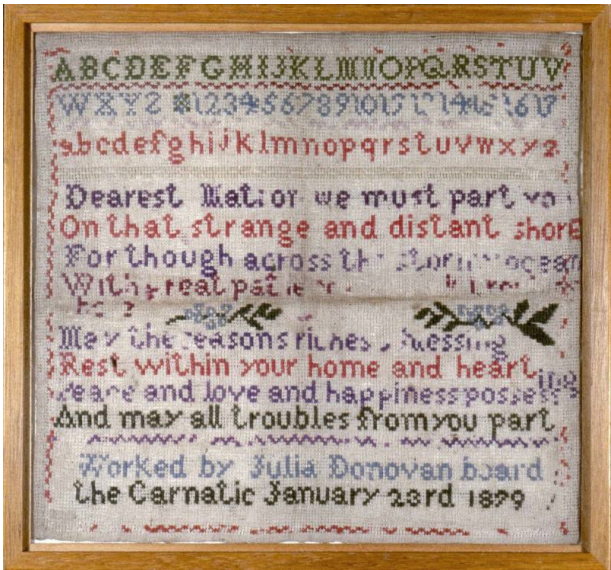 ABCDEFGHIJKLMNOPQRSTUV
WXYZ 1234567891011
abcdefghijklmnopqrstuvwxyz
Dearest we must part
On that strange and distant shore
For though across the
With
May the seasons
Rest within your home and heart
Peace and love and happiness possess
And may all troubles from you part
Worked by Julia Donovan board
the Carnatic January 23rd 1879